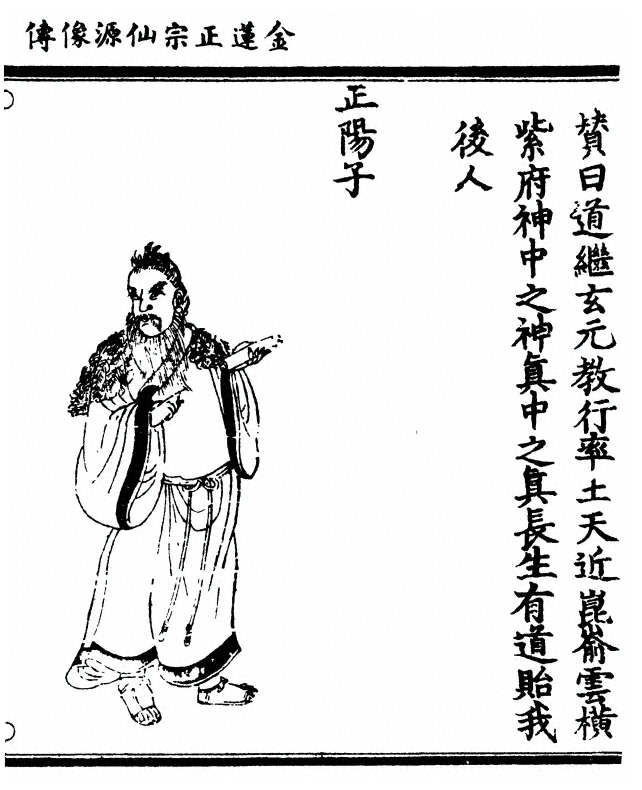 金蓮正宗仙源像傳
賛曰道繼玄元教行率土天近崑崙雲橫
紫府神中之神眞中之眞長生有道貽我
後人
正陽子